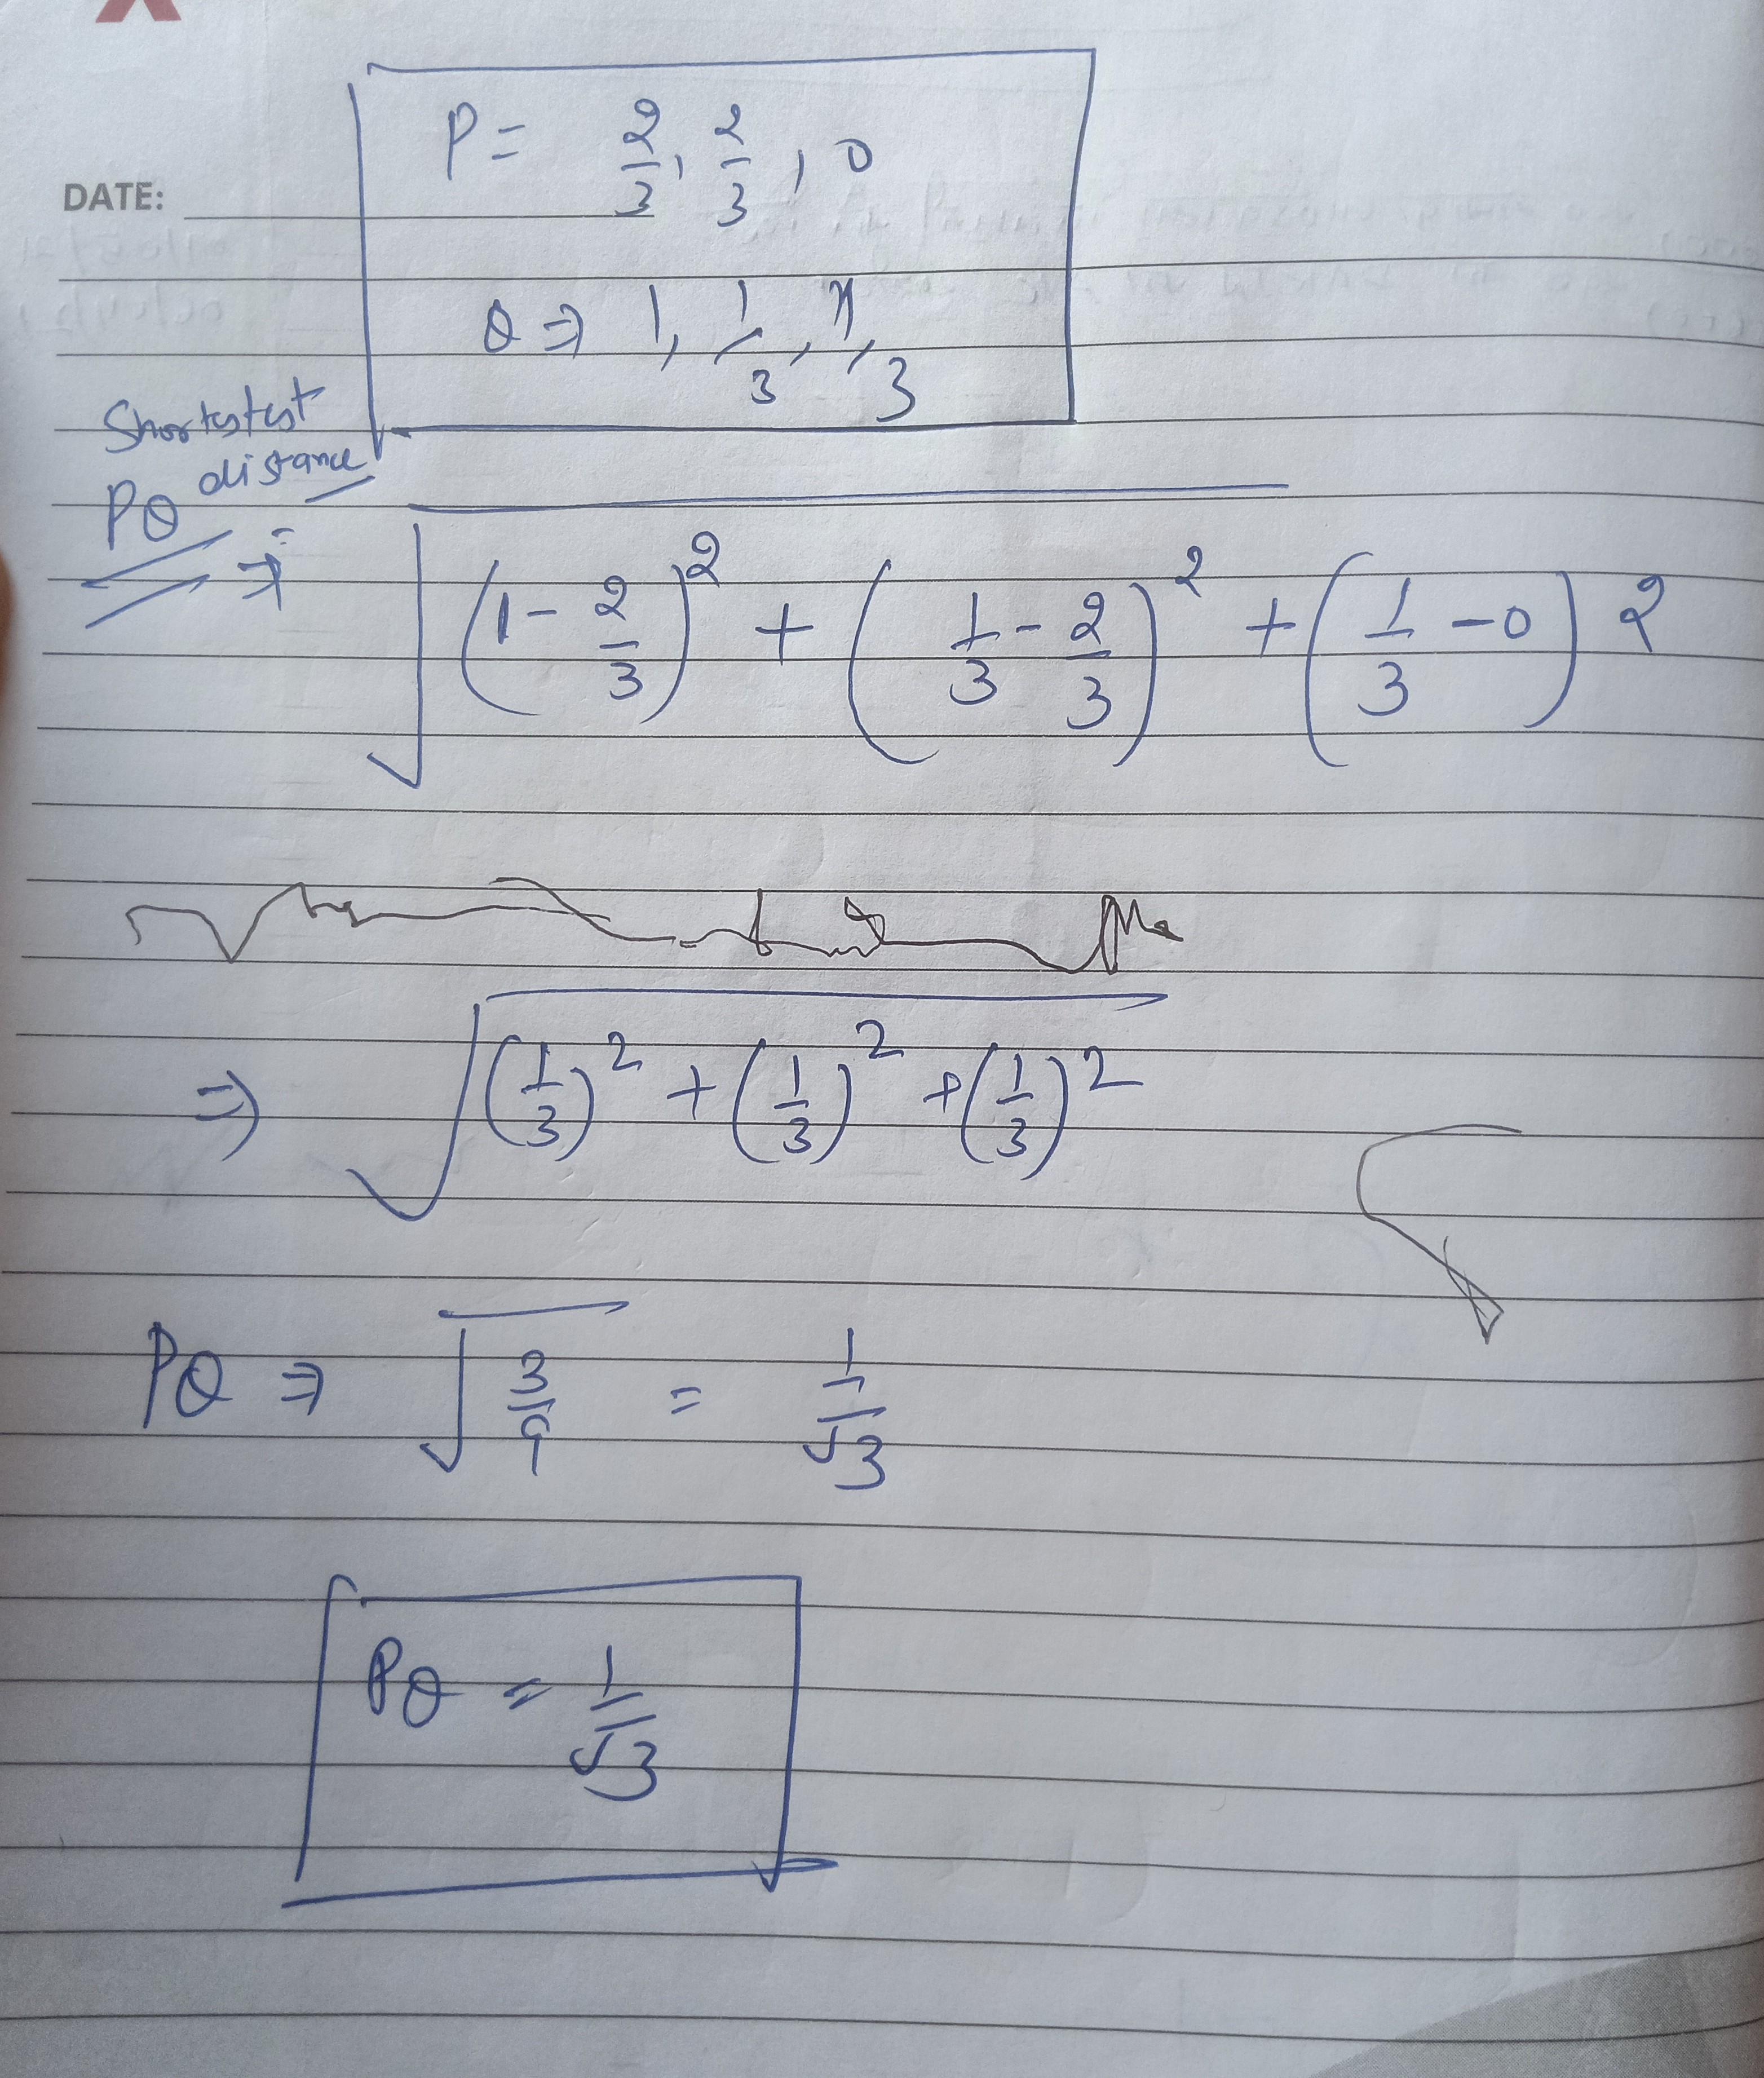 DATE:
P = 2/3, 2/3, 0
Q ⇒ 1, 1/3, 1/3
Shortestest
distance
PQ
⇒ √((1 - 2/3)² + (1/3 - 2/3)² + (1/3 - 0)²)
⇒ √((1/3)² + (1/3)² + (1/3)²)
PQ ⇒ √(3/9) = 1/√3
PQ = 1/√3